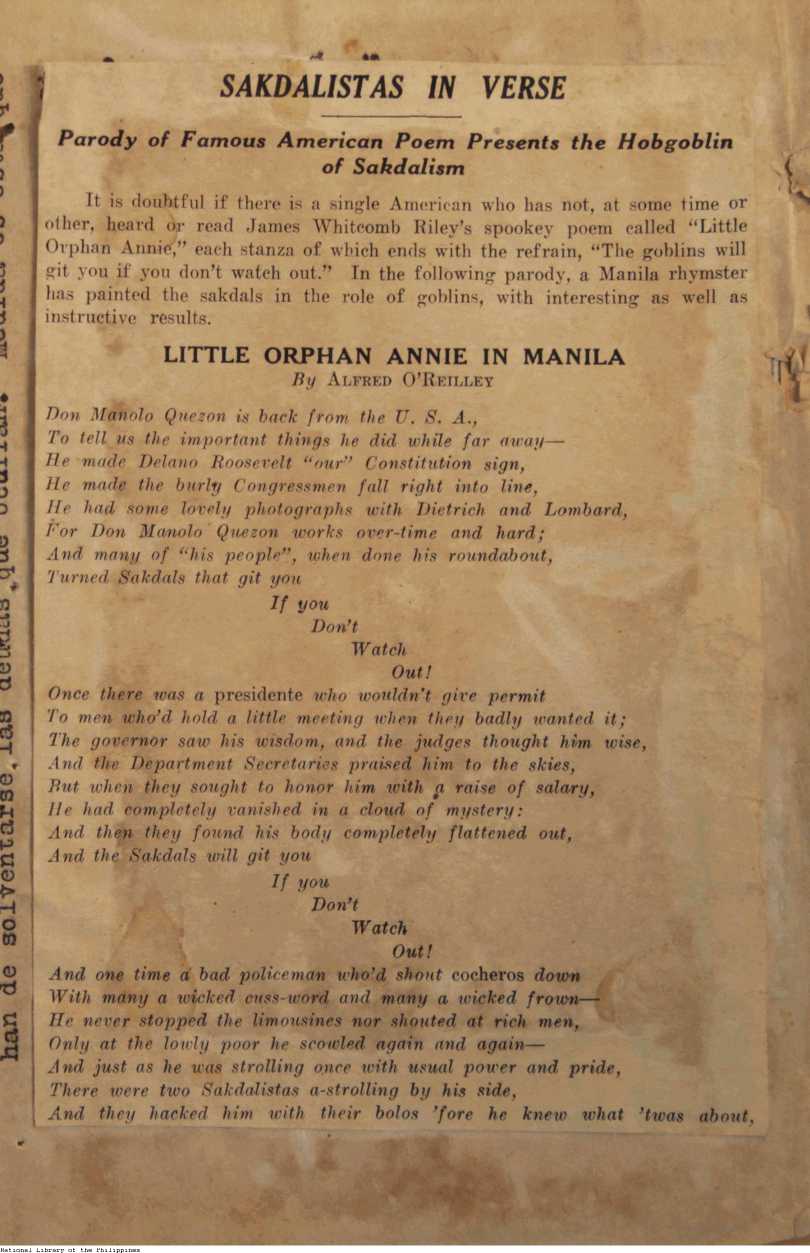 SAKDALISTAS IN VERSE
Parody of Famous American Poem Presents the Hobgoblin
of Sakdalism
It is doubtful if there is a single American who has not, at some time or
other, heard or read James Whitcomb Riley's spookey poem called "Little
Orphan Annie," each stanza of which ends with the refrain, "The goblins will
git you if you don't watch out." In the following parody, a Manila rhymster
has painted the sakdals in the role of goblins, with interesting as well as
instructive results.
LITTLE ORPHAN ANNIE IN MANILA
By ALFRED O'REILLEY
Don Manolo Quezon is back from the U. S. A.,
To tell us the important things he did while far away—
He made Delano Roosevelt "our" Constitution sign,
He made the burly Congressmen fall right into line,
He had some lovely photographs with Dietrich and Lombard,
For Don Manolo Quezon works over-time and hard;
And many of "his people", when done his roundabout,
Turned Sakdals that git you
If you
Don't
Watch
Out!
Once there was a presidente who wouldn't give permit
To men who'd hold a little meeting when they badly wanted it;
The governor saw his wisdom, and the judges thought him wise,
And the Department Secretaries praised him to the skies,
But when they sought to honor him with a raise of salary,
He had completely vanished in a cloud of mystery:
And then they found his body completely flattened out,
And the Sakdals will git you
If you
Don't
Watch
Out!
And one time a bad policeman who'd shout cocheros down
With many a wicked cuss-word and many a wicked frown—
He never stopped the limousines nor shouted at rich men,
Only at the lowly poor he scowled again and again—
And just as he was strolling once with usual power and pride,
There were two Sakdalistas a-strolling by his side,
And they hacked him with their bolos 'fore he knew what 'twas about,
han de solventarse, las deudas, que ocultan.
National Library of the Philippines